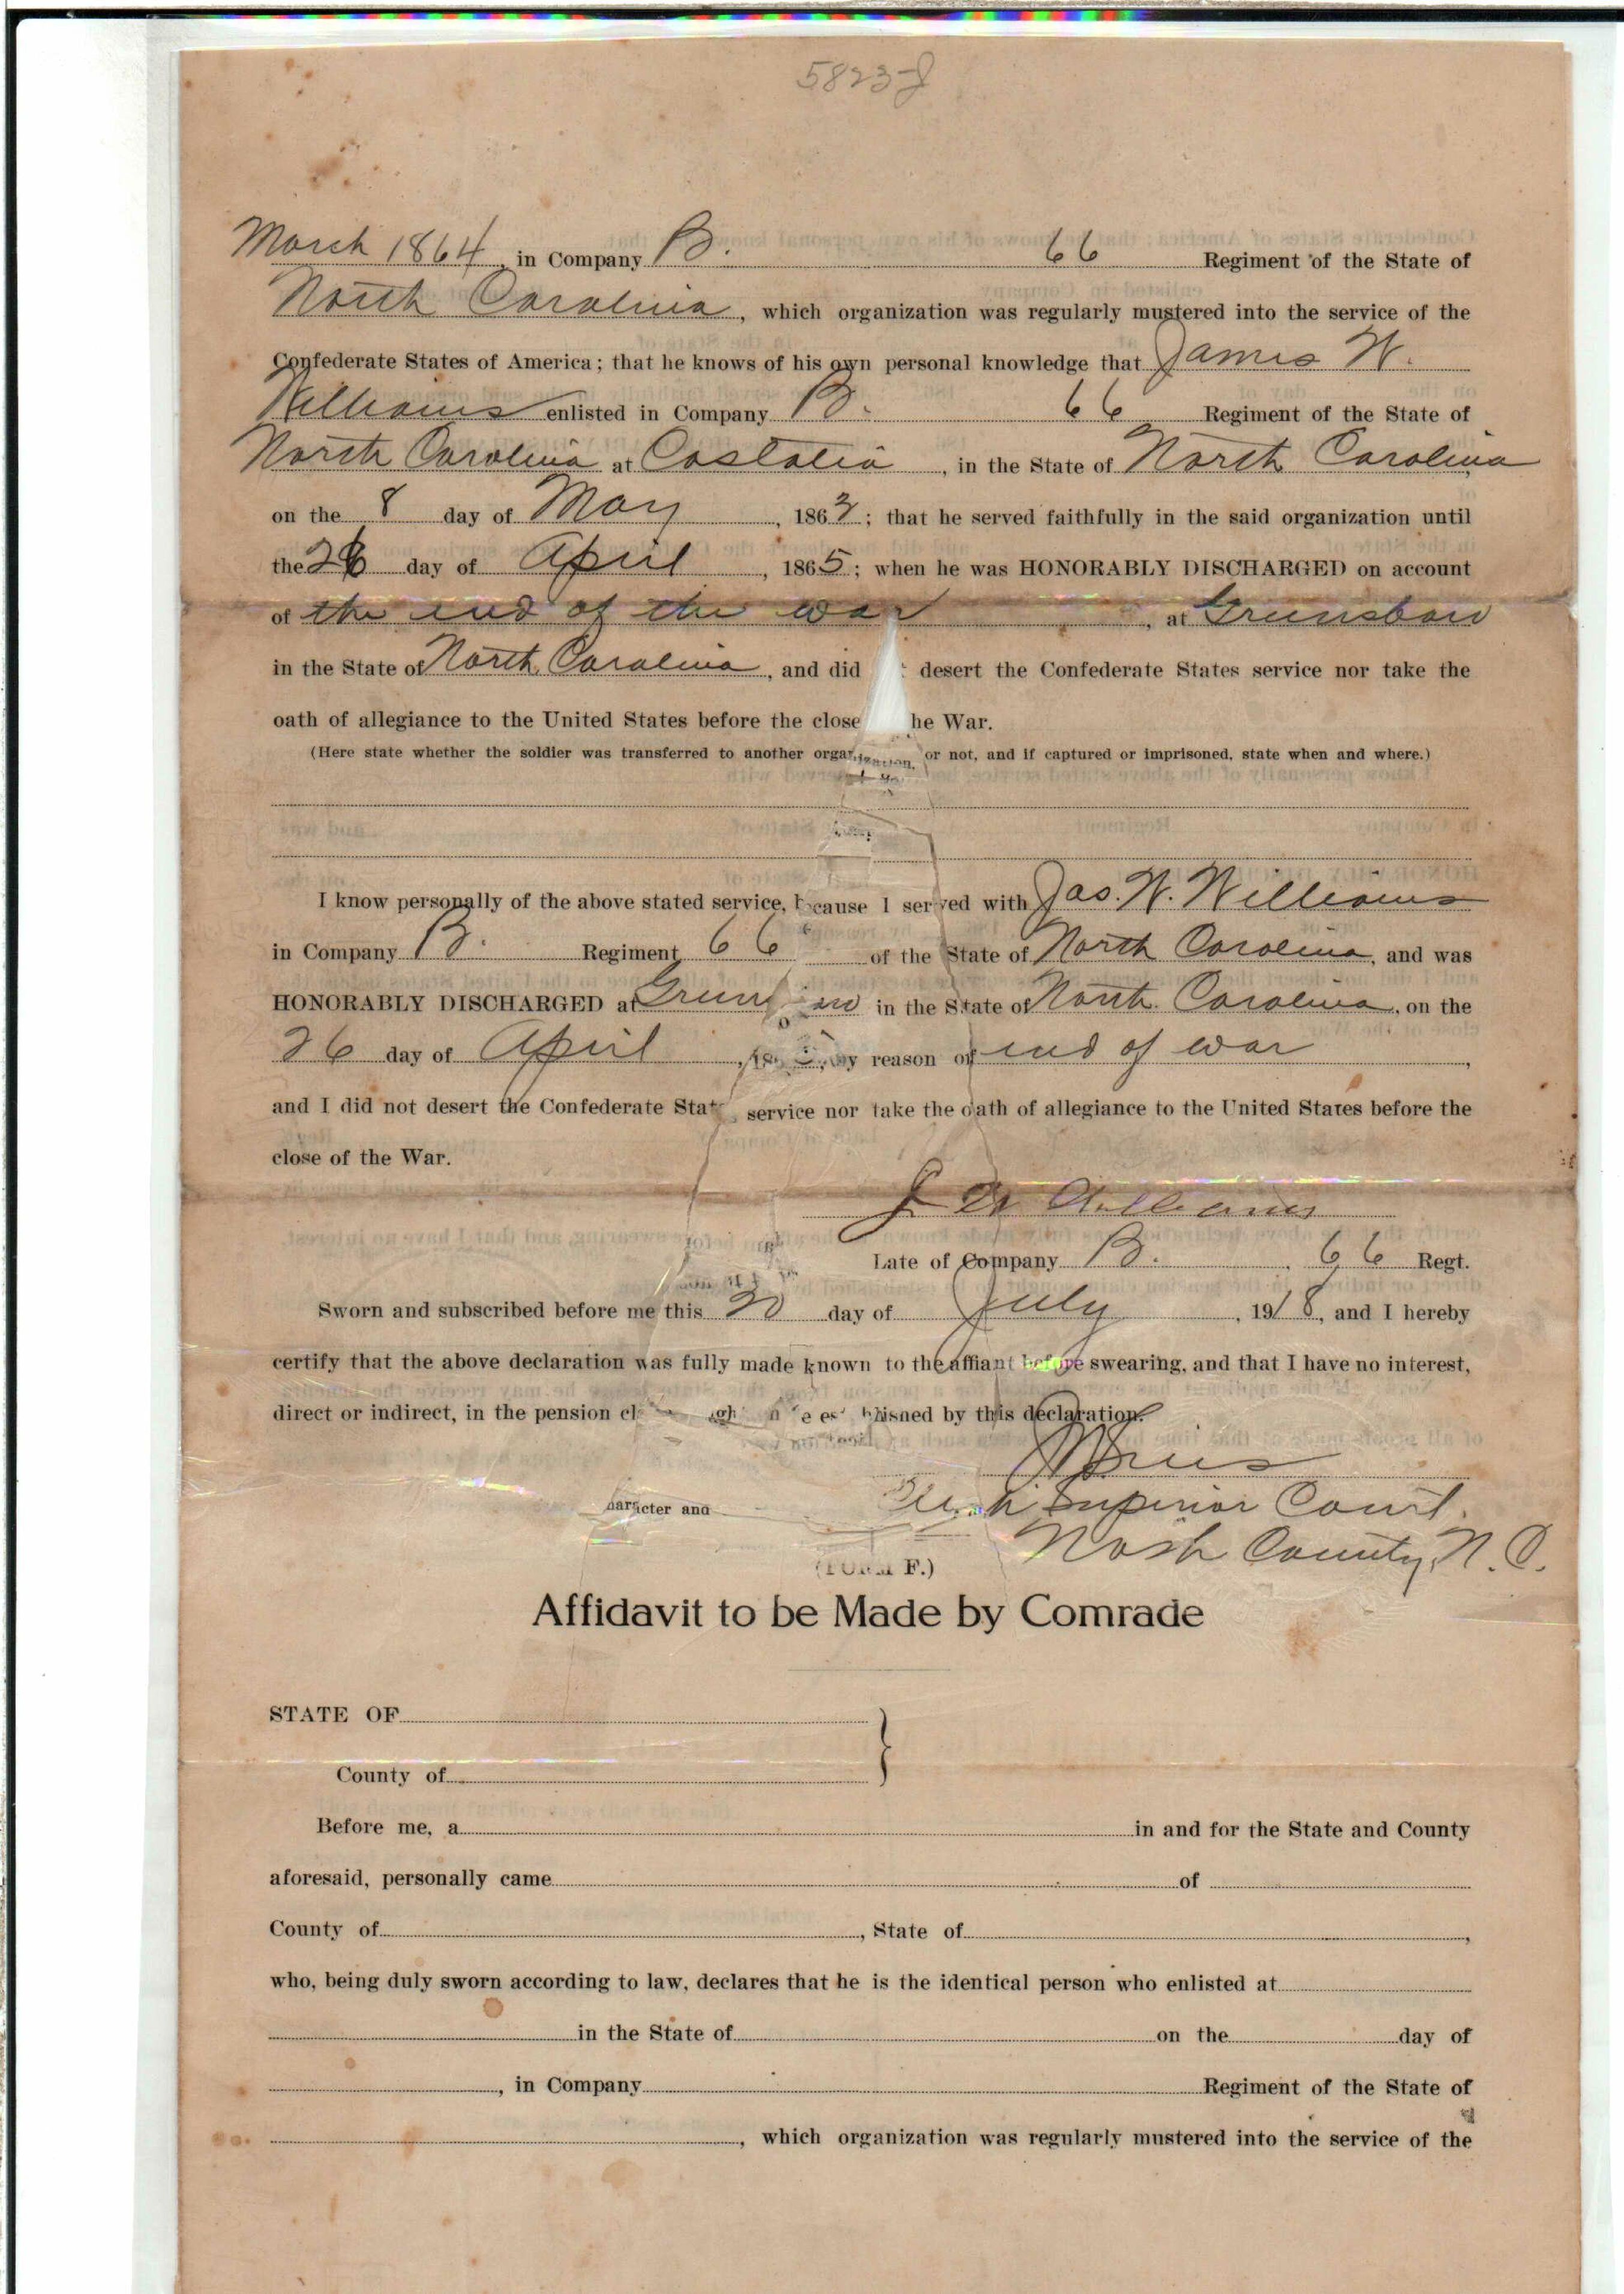 5823-
March 1864, in Company B. 66 Regiment of the State of
North Carolina, which organization was regularly mustered into the service of the
Confederate States of America; that he knows of his own personal knowledge that James W.
Williams enlisted in Company B. 66 Regiment of the State of
North Carolina at Castalia, in the State of North Carolina
on the 8 day of May, 1862; that he served faithfully in the said organization until
the 26 day of April, 1865; when he was HONORABLY DISCHARGED on account
of the end of the war, at Greensboro
in the State of North Carolina, and did desert the Confederate States service nor take the
oath of allegiance to the United States before the close he War.
(Here state whether the soldier was transferred to another organization, or not, and if captured or imprisoned, state when and where.)
I know personally of the above stated service, because I served with Jas. W. Williams
in Company B. Regiment 66 of the State of North Carolina, and was
HONORABLY DISCHARGED at Greensboro in the State of North Carolina, on the
26 day of April, 1865, by reason of end of war,
and I did not desert the Confederate States service nor take the oath of allegiance to the United States before the
close of the War.
J W Williams
Late of Company B., 66 Regt.
Sworn and subscribed before me this 20 day of July, 1918, and I hereby
certify that the above declaration was fully made known to the affiant before swearing, and that I have no interest,
direct or indirect, in the pension cl by this declaration.
Clerk Superior Court.
haracter and
Nash County, N. C.
(FORM F.)
Affidavit to be Made by Comrade
STATE OF
County of
Before me, a in and for the State and County
aforesaid, personally came of
County of, State of,
who, being duly sworn according to law, declares that he is the identical person who enlisted at
in the State of on the day of
, in Company Regiment of the State of
, which organization was regularly mustered into the service of the